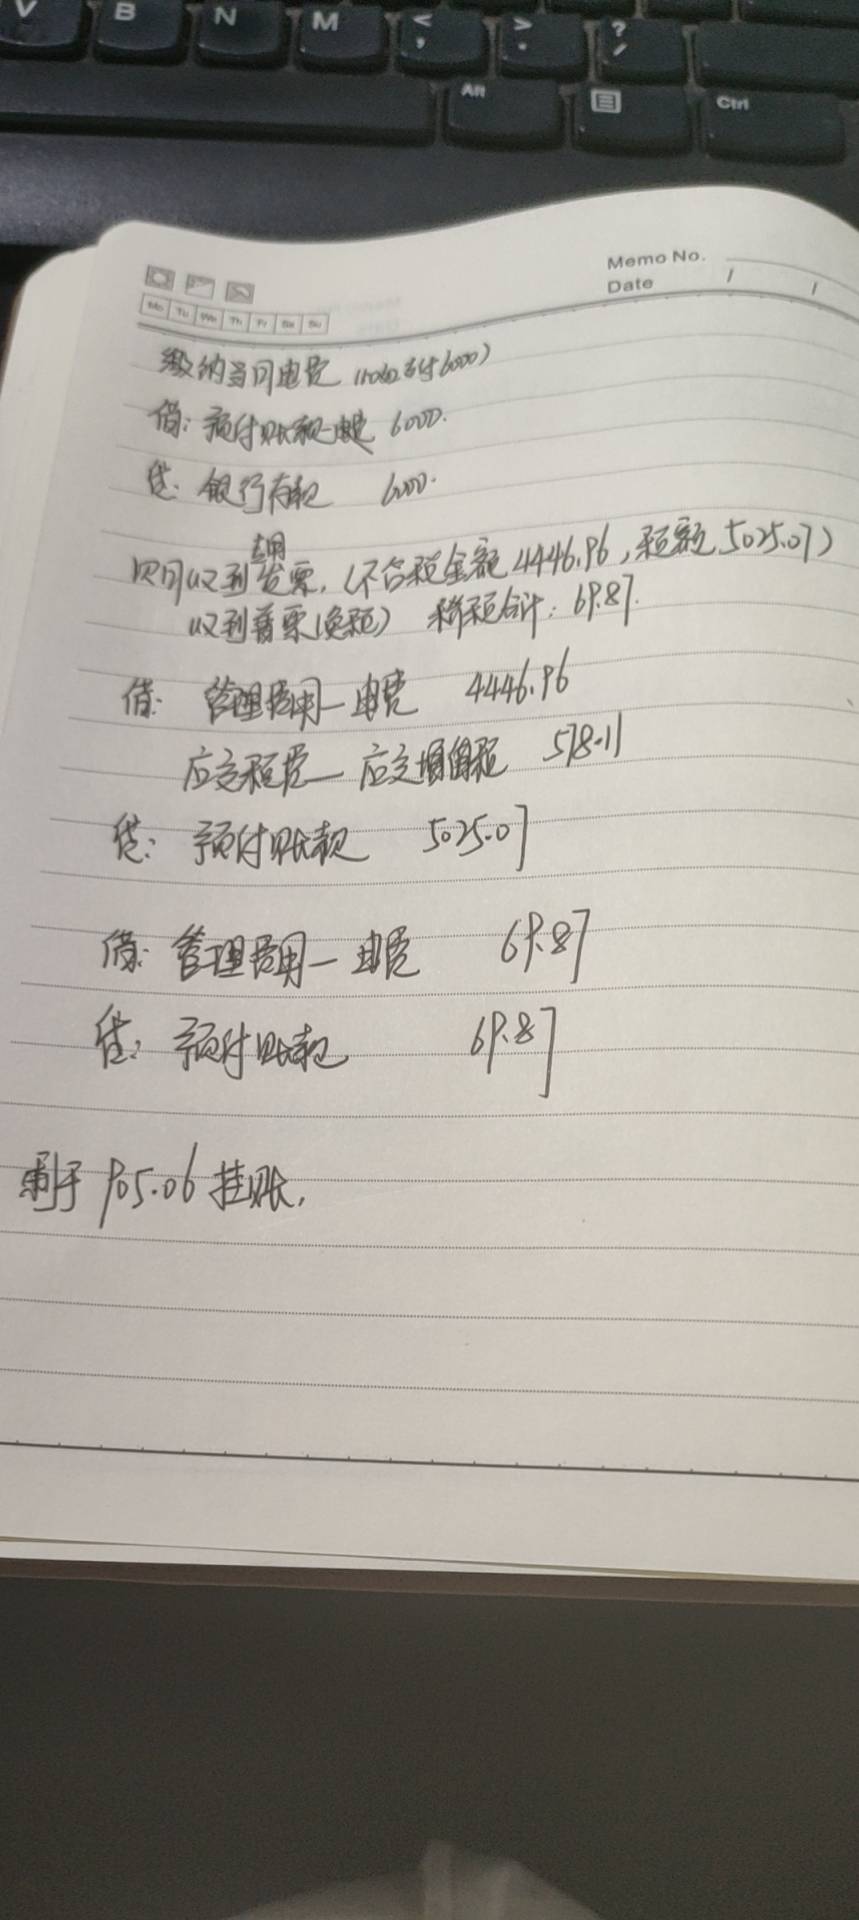 V B N M < , > . ? /
Alt Ctrl
Memo No.
Date / /
Mo Tu We Th Fr Sa Su
缴纳当月电费 支付6000)
借: 预付账款-电费 6000.
贷: 银行存款 6000.
专用
次月收到发票,(不含税金额4446.96,税额5025.07)
收到普票(免税) 税合计: 69.87.
借: 管理费用—电费 4446.96
应交税费—应交增值税 578.11
贷: 预付账款 5025.07
借: 管理费用—电费 69.87
贷: 预付账款 69.87
剩于905.06挂账.